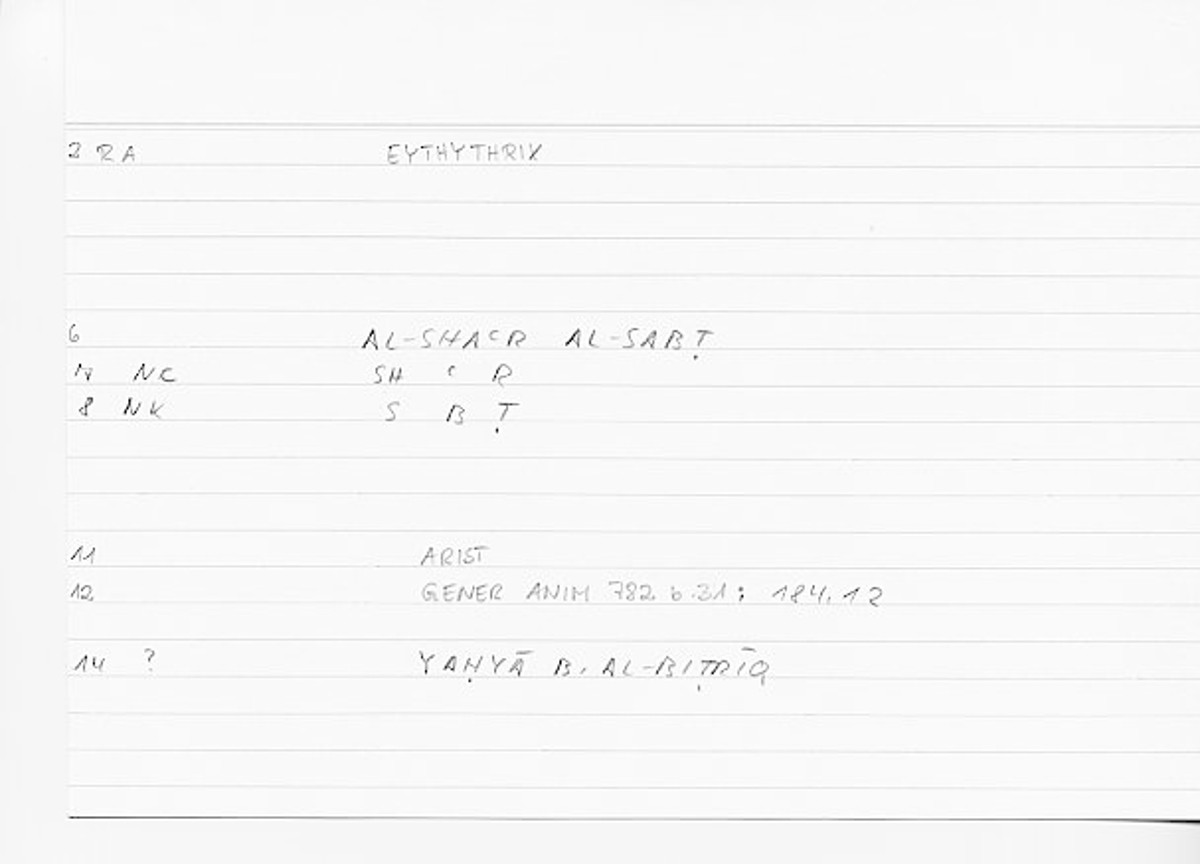 3 RA EYTHYTHRIX
6 AL-SHAᶜR AL-SABṬ
7 NC SH ᶜ R
8 NK S B Ṭ
11 ARIST
12 GENER ANIM 782 b 31; 184,12
14 ? YAḤYĀ B. AL-BIṬRĪQ